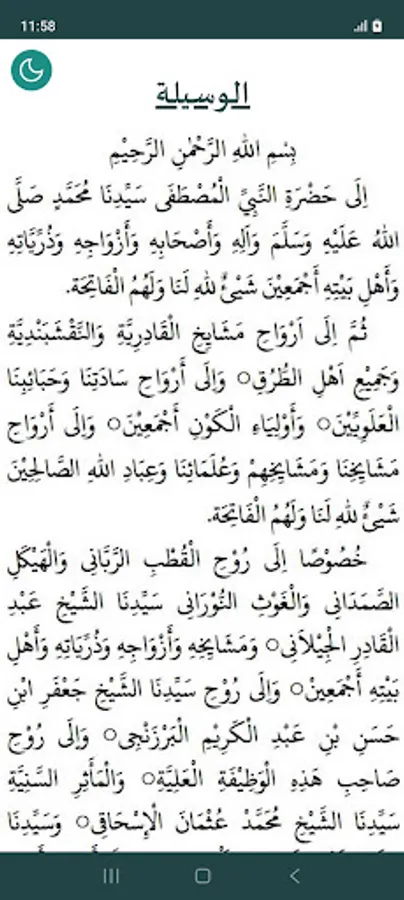 11:58
الوسيلة
بِسْمِ اللهِ الرَّحْمٰنِ الرَّحِيْمِ
اِلَى حَضْرَةِ النَّبِيِّ الْمُصْطَفَى سَيِّدِنَا مُحَمَّدٍ صَلَّى
اللهُ عَلَيْهِ وَسَلَّمَ وَآلِهِ وَأَصْحَابِهِ وَأَزْوَاجِهِ وَذُرِّيَّاتِهِ
وَأَهْلِ بَيْتِهِ أَجْمَعِيْنَ شَيْئٌ لِلهِ لَنَا وَلَهُمُ الْفَاتِحَة.
ثُمَّ اِلَى اَرْوَاحِ مَشَايِخِ الْقَادِرِيَّةِ وَالنَّقْشَبَنْدِيَّةِ
وَجَمِيْعِ اَهْلِ الطُّرُقِ○ وَاِلَى أَرْوَاحِ سَادَتِنَا وَحَبَائِبِنَا
الْعَلَوِيِّيْنَ○ وَأَوْلِيَاءِ الْكَوْنِ أَجْمَعِيْنَ○ وَاِلَى أَرْوَاحِ
مَشَايِخِنَا وَمَشَايِخِهِمْ وَعُلَمَائِنَا وَعِبَادِ اللهِ الصَّالِحِيْنَ
شَيْئٌ لِلهِ لَنَا وَلَهُمُ الْفَاتِحَة.
خُصُوْصًا اِلَى رُوْحِ الْقُطْبِ الرَّبَّانِى وَالْهَيْكَلِ
الصَّمَدَانِى وَالْغَوْثِ النُّوْرَانِى سَيِّدِنَا الشَّيْخِ عَبْدِ
الْقَادِرِ الْجِيْلَانِى○ وَمَشَايِخِهِ وَأَزْوَاجِهِ وَذُرِّيَاتِهِ وَأَهْلِ
بَيْتِهِ أَجْمَعِيْنَ○ وَاِلَى رُوْحِ سَيِّدِنَا الشَّيْخِ جَعْفَرِ ابْنِ
حَسَنِ بْنِ عَبْدِ الْكَرِيْمِ الْبَرْزَنْجِى○ وَاِلَى رُوْحِ
صَاحِبِ هَذِهِ الْوَظِيْفَةِ الْعَلِيَّةِ○ وَالْمَأْثِرِ السَّنِيَّةِ
سَيِّدِنَا الشَّيْخِ مُحَمَّدْ عُثْمَانَ الْإِسْحَاقِى○ وَسَيِّدِنَا